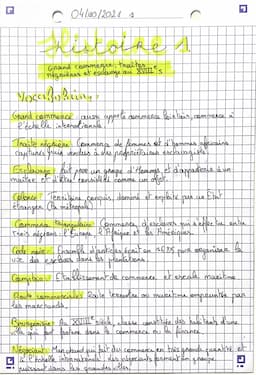 04/10/2021
Histoire 1
Grand commerce, traites
négrières et esclavage au XVIIIe s
Vocabulaire :
Grand commerce : aussi appelé commerce lointain, commerce à
l'échelle internationale.
Traite négrière : Commerce de femmes et d'hommes africains
capturés puis vendus à des propriétaires esclavagistes.
Esclavage : fait pour un groupe d'Hommes d'appartenir à un
maître et d'être considéré comme un objet.
Colonie : Territoire conquis, dominé et exploité par un État
étranger (la métropole)
Commerce triangulaire : Commerce d'esclaves qui s'effectue entre
l'Afrique et les Amériques.
Code noir : Ensemble d'articles écrit en pour organiser la
vie des esclaves dans les plantations.
Comptoir : Etablissement de commerce et escale maritime
Route commerciale : Route terrestre ou maritime empruntée par
les marchands.
Bourgeoisie : Au XVIIIe siècle, classe constituée des habitants d'une
ville qui font fortune dans le commerce ou la finance.
Négociant : Marchand qui fait du commerce en très grande quantité et
à l'échelle internationale : les négociants forment un groupe
puissant dans les grandes villes.